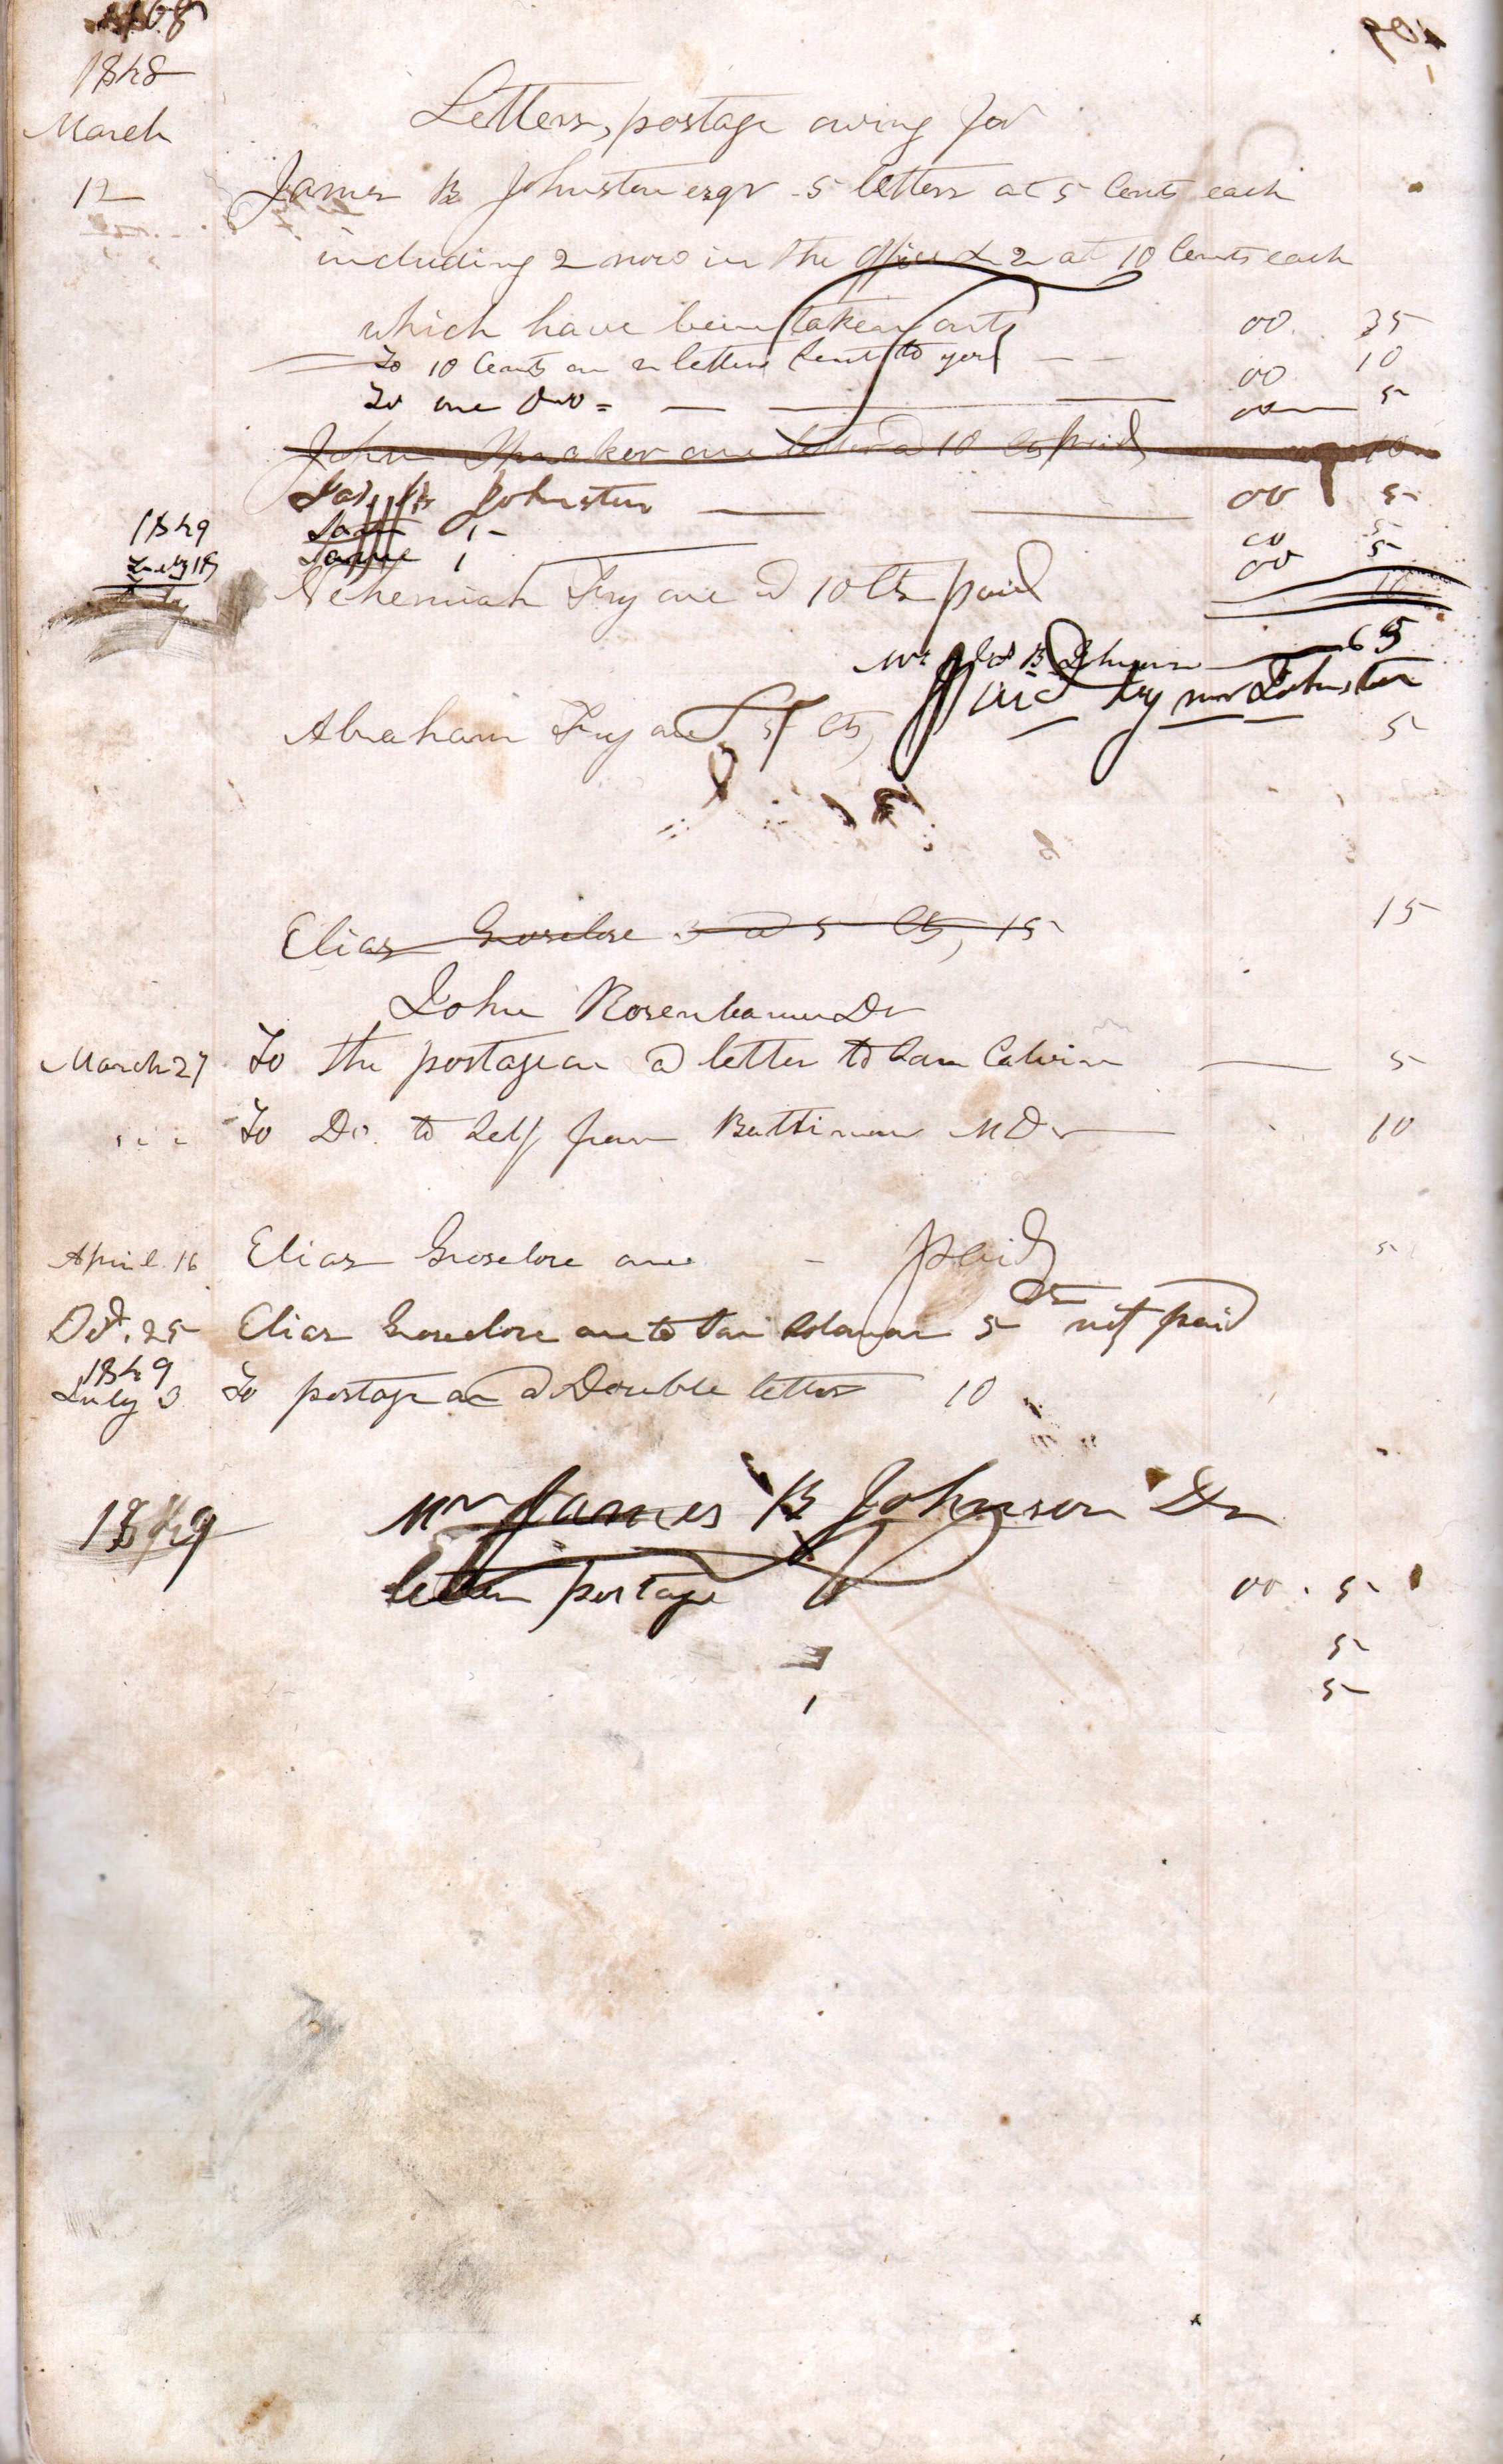 1848
March
Letters, postage owing for
12 James B Johnston esqr 5 letters at 5 Cents each
including 2 now in the office & 2 at 10 Cents each
which have been taken out 00 35
To 10 Cents on 2 letters Sent to you 00 10
To one Do = 00 5
John one letter @ 10 Cts paid 10
Jas. B Johnston 00 5
1849 Same 1 00 5
July 18 Same 1 00 5
Nehemiah Fry one @ 10 Cts paid 10
Mr Jas B Johnson 65
Paid by mr Johnston
Abraham Fry one 5 Cts, 5
Elias Groseclose 3 @ 5 Cts, 15 15
John Rosenbaum Dr
March 27 To the postage on a letter to Sam Calvin 5
To Do. to Self from Baltimore MD 10
April. 16 Elias Groseclose one - paid 5
Oct. 25 Elias Groseclose one to 5 not paid
1849
July 3 To postage on a Double letter 10
1849 Mr James B Johnson Dr
letter postage 00. 5
5
1 5